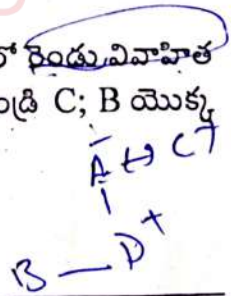 లో రెండు వివాహిత
ండ్రి C; B యొక్క
A ↔ C+
B — D+